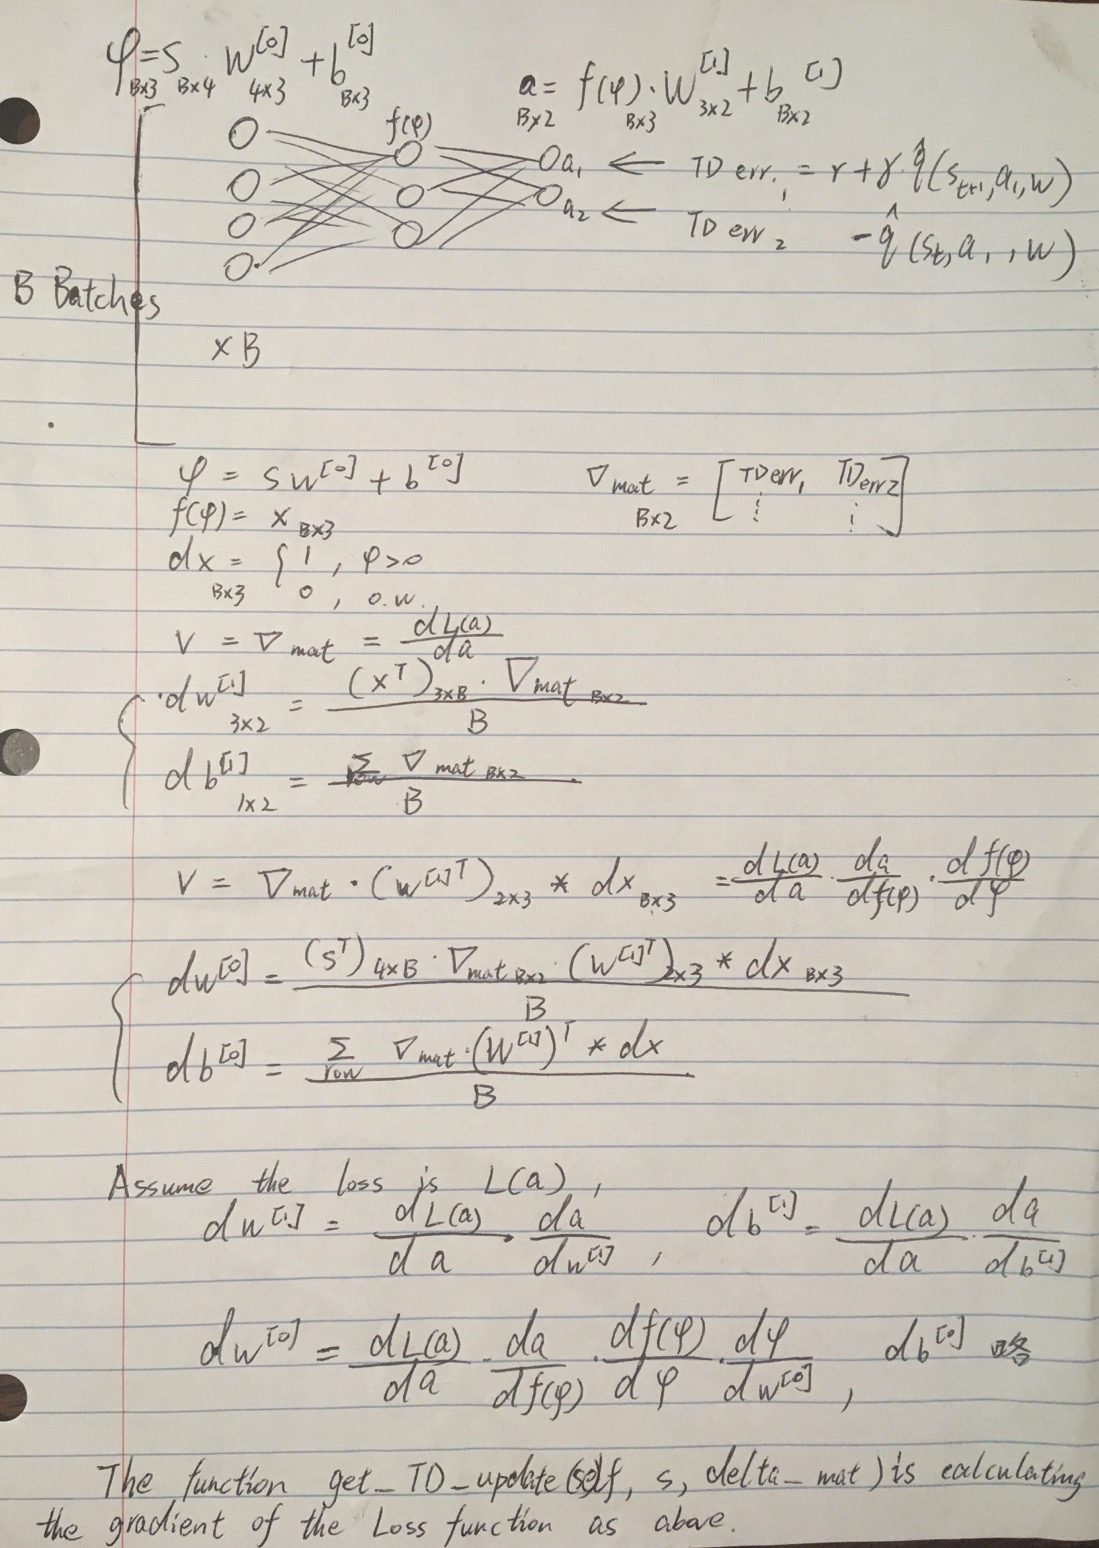 φ_{B×3} = S_{B×4} · W^{[0]}_{4×3} + b^{[0]}_{B×3}
a_{B×2} = f(φ)_{B×3} · W^{[1]}_{3×2} + b^{[1]}_{B×2}
f(φ)
a₁ ← TD err₁ = r + γ · q̂(s_{t+1}, a₁, w)
a₂ ← TD err₂ - q̂(s_t, a₁, w)
B Batches
× B
φ = s w^{[0]} + b^{[0]}
∇mat_{B×2} = [TD err₁ TD err2 ⋮ ⋮]
f(φ) = x_{B×3}
dx_{B×3} = { 1, φ>0
0, o.w.
V = ∇mat = dL(a)/da
dw^{[1]}_{3×2} = (x^T)_{3×B} · ∇mat_{B×2} / B
db^{[1]}_{1×2} = Σ_{row} ∇mat_{B×2} / B
V = ∇mat · (w^{[1]T})_{2×3} * dx_{B×3} = dL(a)/da · da/df(φ) · df(φ)/dφ
dw^{[0]} = (s^T)_{4×B} · ∇mat_{B×2} · (w^{[1]T})_{2×3} * dx_{B×3} / B
db^{[0]} = Σ_{row} ∇mat · (W^{[1]})^T * dx / B
Assume the loss is L(a),
dw^{[1]} = dL(a)/da · da/dw^{[1]}, db^{[1]} = dL(a)/da · da/db^{[1]}
dw^{[0]} = dL(a)/da · da/df(φ) · df(φ)/dφ · dφ/dw^{[0]}, db^{[0]} 略
The function get_TD_update(self, s, delta_mat) is calculating
the gradient of the Loss function as above.